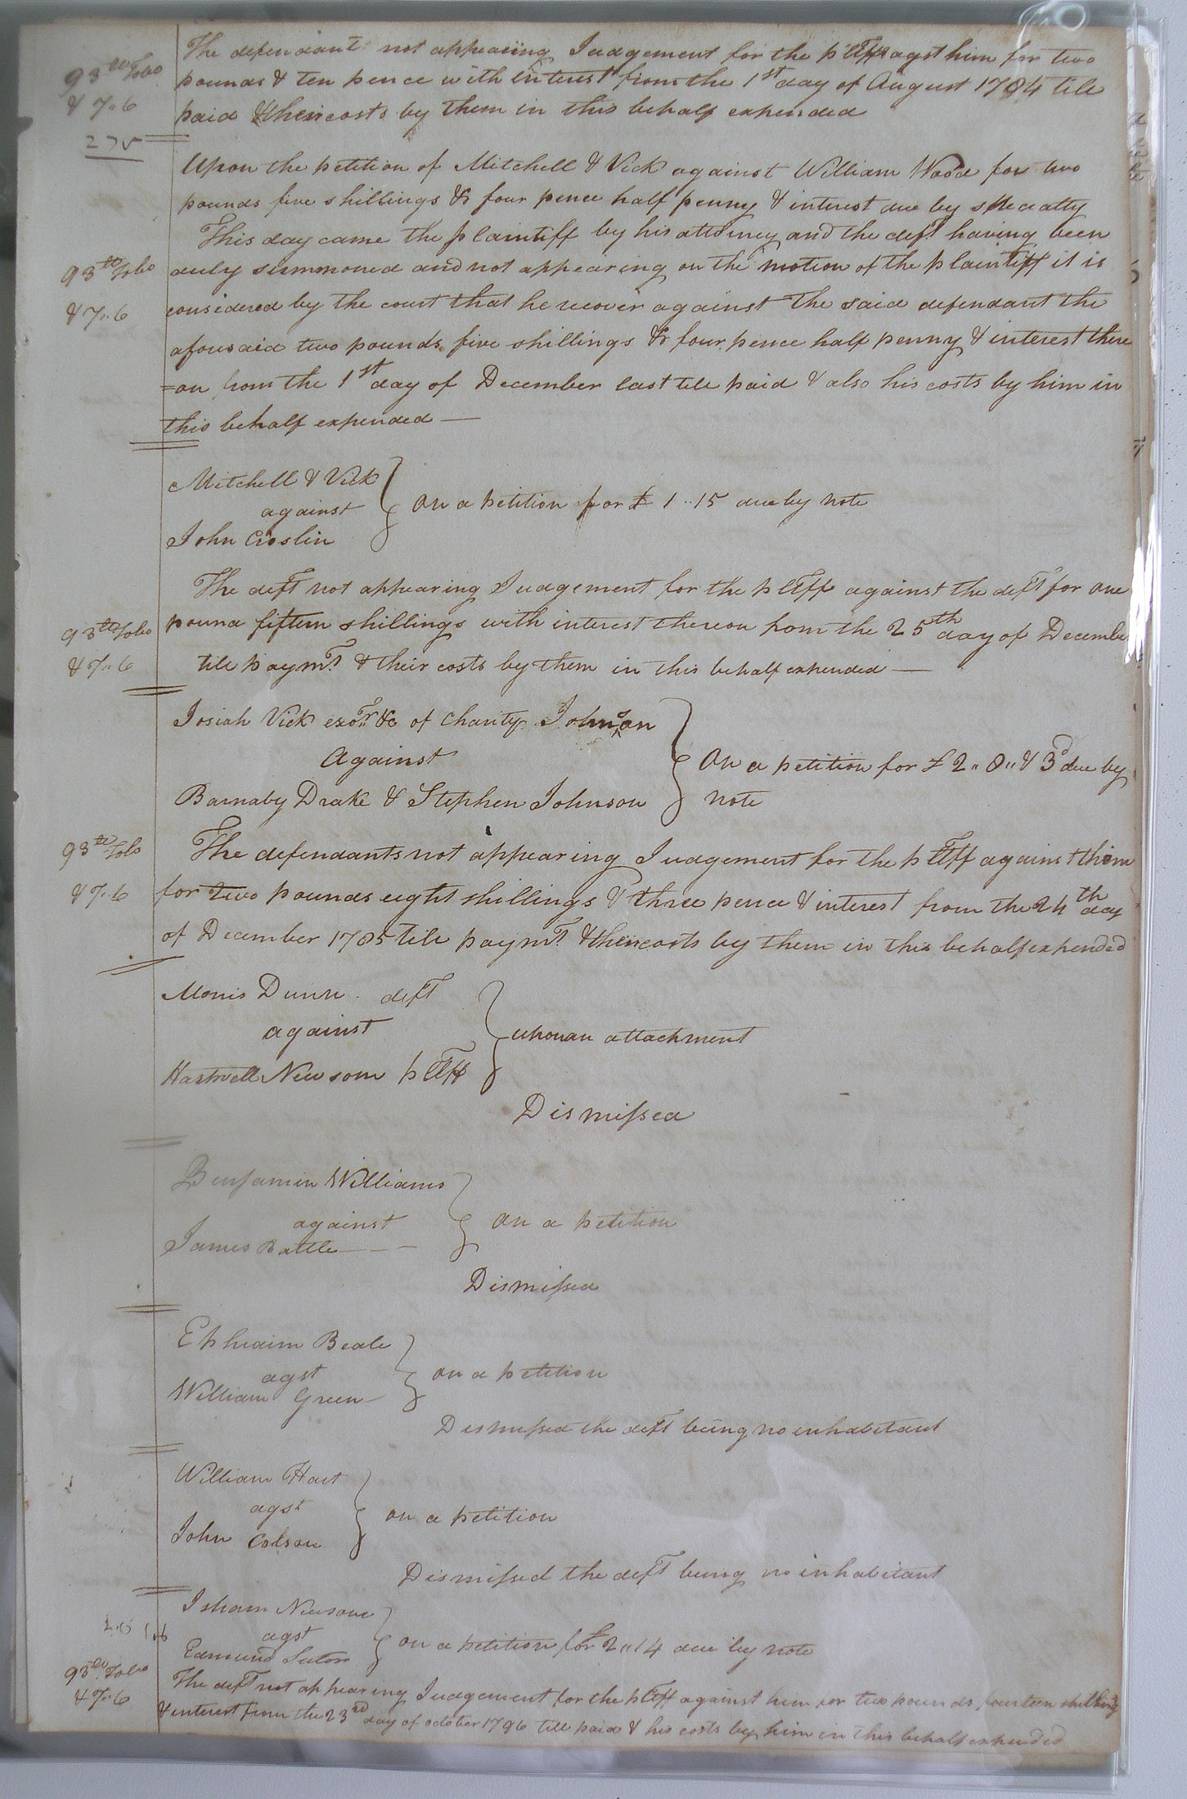 The defendant not appearing Judgement for the pltff agst him for two
93 lb Tobo
pounds & ten pence with interest from the 1st day of August 1784 till
& 7..6
paid & their costs by them in this behalf expended
275
Upon the petition of Mitchell & Vick against William Wood for two
pounds five shillings & four pence half penny & interest due by specialty
This day came the plaintiff by his attorney and the deft having been
93 lb Tobo
duly summoned and not appearing on the motion of the plaintiff it is
& 7..6
considered by the court that he recover against the said defendant the
aforesaid two pounds five shillings & four pence half penny & interest there
=on from the 1st day of December last till paid & also his costs by him in
this behalf expended —
Mitchell & Vick
against
on a petition for £ 1..15 due by note
John Croslin
The deft not appearing Judgement for the pltff against the deft for one
93 lb Tobo
pound fifteen shillings with interest thereon from the 25th day of December
& 7..6
till paymt & their costs by them in this behalf expended —
Josiah Vick exor &c of Charity Johnson
Against
On a petition for £ 2 " 8 " & 3d due by
Barnaby Drake & Stephen Johnson
note
93 lb Tobo
The defendants not appearing Judgement for the pltff against them
& 7..6
for two pounds eight shillings & three pence & interest from the 24th day
of December 1785 till paymt & their costs by them in this behalf expended
Morris Dunn deft
against
upon an attachment
Hartwell Newsom pltff
Dismissed
Benjamin Williams
against
on a petition
James Battle — —
Dismissed
Ephraim Beale
agst
on a petition
William Green
Dismissed the deft being no inhabitant
William Hart
agst
on a petition
John Colson
Dismissed the deft being no inhabitant
Isham Newsom
agst
on a petition for £ 2 " 14 due by note
Edmund
93 lb Tobo
The deft not appearing Judgement for the pltff against him for two pounds fourteen shillings
& 7..6
& interest from the 23rd day of october 1786 till paid & his costs by him in this behalf expended